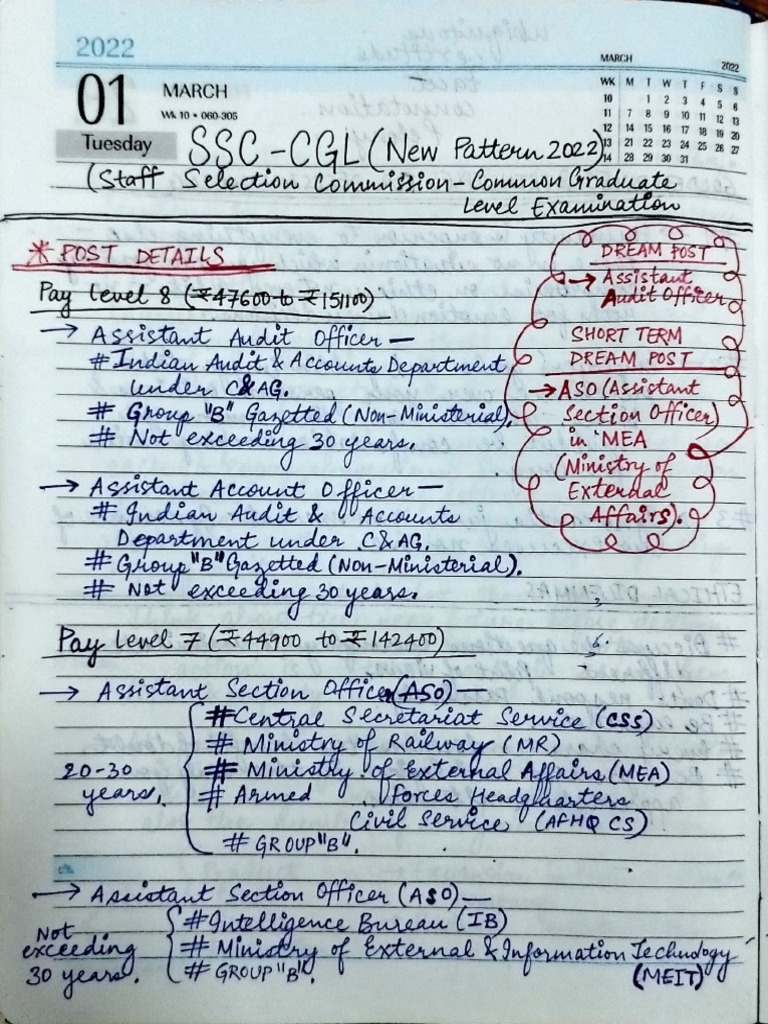 2022
01
MARCH
Wk 10 • 060-305
Tuesday
MARCH 2022
WK M T W T F S S
10 1 2 3 4 5 6
11 7 8 9 10 11 12 13
12 14 15 16 17 18 19 20
13 21 22 23 24 25 26 27
14 28 29 30 31
SSC-CGL (New Pattern 2022)
(Staff Selection Commission-Common Graduate
Level Examination
* POST DETAILS
Pay level 8 (₹47600 to ₹151100)
→ Assistant Audit Officer —
# Indian Audit & Accounts Department
under C&AG.
# Group "B" Gazetted (Non-Ministerial).
# Not exceeding 30 years.
→ Assistant Account Officer —
# Indian Audit & Accounts
Department under C&AG.
# Group "B" Gazetted (Non-Ministerial).
# Not exceeding 30 years.
DREAM POST
→ Assistant
Audit Officer
SHORT TERM
DREAM POST
→ ASO (Assistant
Section Officer)
in MEA
(Ministry of
External
Affairs).
Pay Level 7 (₹44900 to ₹142400)
→ Assistant Section Officer (ASO) —
20-30
years.
# Central Secretariat Service (CSS)
# Ministry of Railway (MR)
# Ministry of External Affairs (MEA)
# Armed Forces Headquarters
Civil Service (AFHQ CS)
# GROUP "B".
→ Assistant Section Officer (ASO) —
Not
exceeding
30 years.
# Intelligence Bureau (IB)
# Ministry of External & Information Technology
(MEIT)
# GROUP "B".